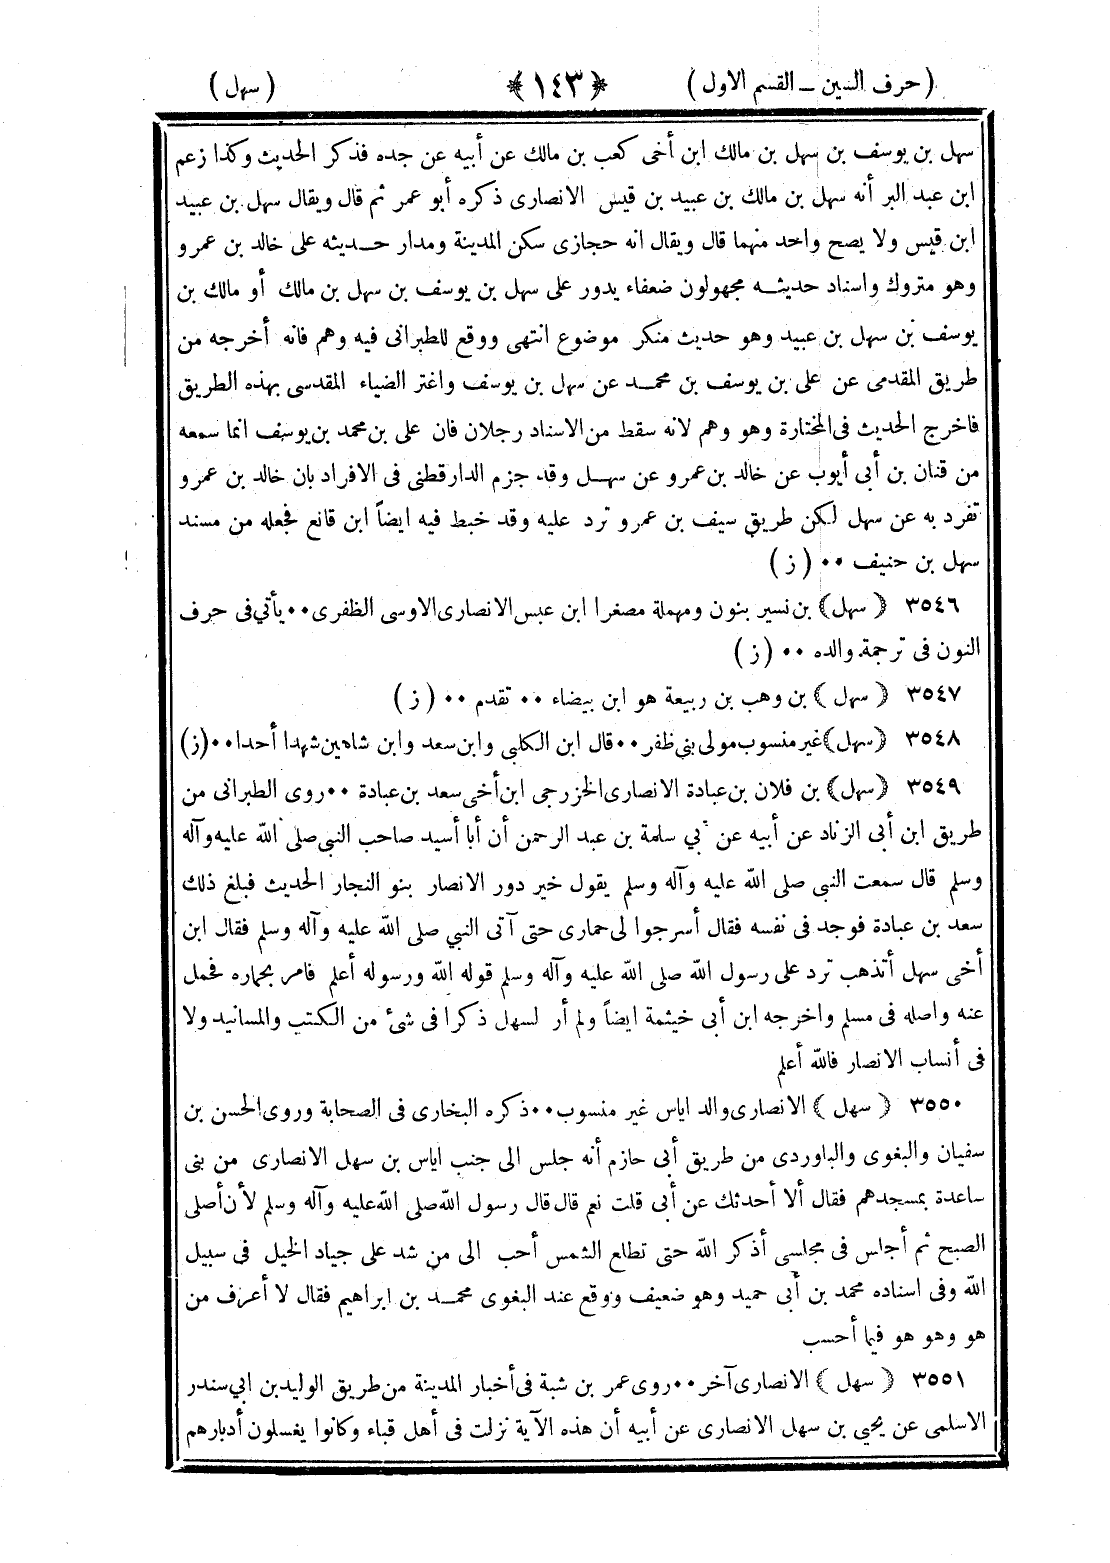 (حرف السين ــ القسم الاول) ﴿١٤٣﴾ (سهل)
سهل بن يوسف بن سهل بن مالك ابن أخى كعب بن مالك عن أبيه عن جده فذكر الحديث وكذا زعم
ابن عبد البر أنه سهل بن مالك بن عبيد بن قيس الانصارى ذكره أبو عمر ثم قال ويقال سهل بن عبيد
ابن قيس ولا يصح واحد منهما قال ويقال انه حجازى سكن المدينة ومدار حديثه على خالد بن عمرو
وهو متروك واسناد حديثه مجهولون ضعفاء يدور على سهل بن يوسف بن سهل بن مالك أو مالك بن
يوسف بن سهل بن عبيد وهو حديث منكر موضوع انتهى ووقع للطبرانى فيه وهم فانه أخرجه من
طريق المقدمى عن على بن يوسف بن محمد عن سهل بن يوسف واغتر الضياء المقدسى بهذه الطريق
فاخرج الحديث فى المختارة وهو وهم لانه سقط من الاسناد رجلان فان على بن محمد بن يوسف انما سمعه
من قنان بن أبى أيوب عن خالد بن عمرو عن سهل وقد جزم الدارقطنى فى الافراد بان خالد بن عمرو
تفرد به عن سهل لكن طريق سيف بن عمرو ترد عليه وقد خبط فيه ايضاً ابن قانع فجعله من مسند
سهل بن حنيف ٠٠ (ز)
٣٥٤٦ ﴿ سهل ﴾ بن نسير بنون ومهملة مصغرا ابن عبس الانصارى الاوسى الظفرى ٠٠ يأتي فى حرف
النون فى ترجمة والده ٠٠ (ز)
٣٥٤٧ ﴿ سهل ﴾ بن وهب بن ربيعة هو ابن بيضاء ٠٠ تقدم ٠٠ (ز)
٣٥٤٨ ﴿سهل﴾ غير منسوب مولى بنى ظفر ٠٠ قال ابن الكلبى وابن سعد وابن شاهين شهدا أحدا ٠٠ (ز)
٣٥٤٩ ﴿سهل﴾ بن فلان بن عبادة الانصارى الخزرجى ابن أخى سعد بن عبادة ٠٠ روى الطبرانى من
طريق ابن أبى الزناد عن أبيه عن أبي سلمة بن عبد الرحمن أن أبا أسيد صاحب النبي صلى الله عليه وآله
وسلم قال سمعت النبى صلى الله عليه وآله وسلم يقول خير دور الانصار بنو النجار الحديث فبلغ ذلك
سعد بن عبادة فوجد فى نفسه فقال أسرجوا لى حمارى حتى آتى النبي صلى الله عليه وآله وسلم فقال ابن
أخى سهل أتذهب ترد على رسول الله صلى الله عليه وآله وسلم قوله الله ورسوله أعلم فامر بحماره فحمل
عنه واصله فى مسلم واخرجه ابن أبى خيثمة ايضاً ولم أر لسهل ذكرا فى شئ من الكتب والمسانيد ولا
فى أنساب الانصار فالله أعلم
٣٥٥٠ ﴿ سهل ﴾ الانصارى والد اياس غير منسوب ٠٠ ذكره البخارى فى الصحابة وروى الحسن بن
سفيان والبغوى والباوردى من طريق أبى حازم أنه جلس الى جنب اياس بن سهل الانصارى من بنى
ساعدة بمسجدهم فقال ألا أحدثك عن أبى قلت نعم قال قال رسول الله صلى الله عليه وآله وسلم لأن أصلى
الصبح ثم أجلس فى مجلسى أذكر الله حتى تطلع الشمس أحب الى من شد على جياد الخيل فى سبيل
الله وفى اسناده محمد بن أبى حميد وهو ضعيف ووقع عند البغوى محمد بن ابراهيم فقال لا أعرف من
هو وهو هو فيما أحسب
٣٥٥١ ﴿ سهل ﴾ الانصارى آخر ٠٠ روى عمر بن شبة فى أخبار المدينة من طريق الوليد بن ابي سندر
الاسلمى عن يحيى بن سهل الانصارى عن أبيه أن هذه الآية نزلت فى أهل قباء وكانوا يغسلون أدبارهم